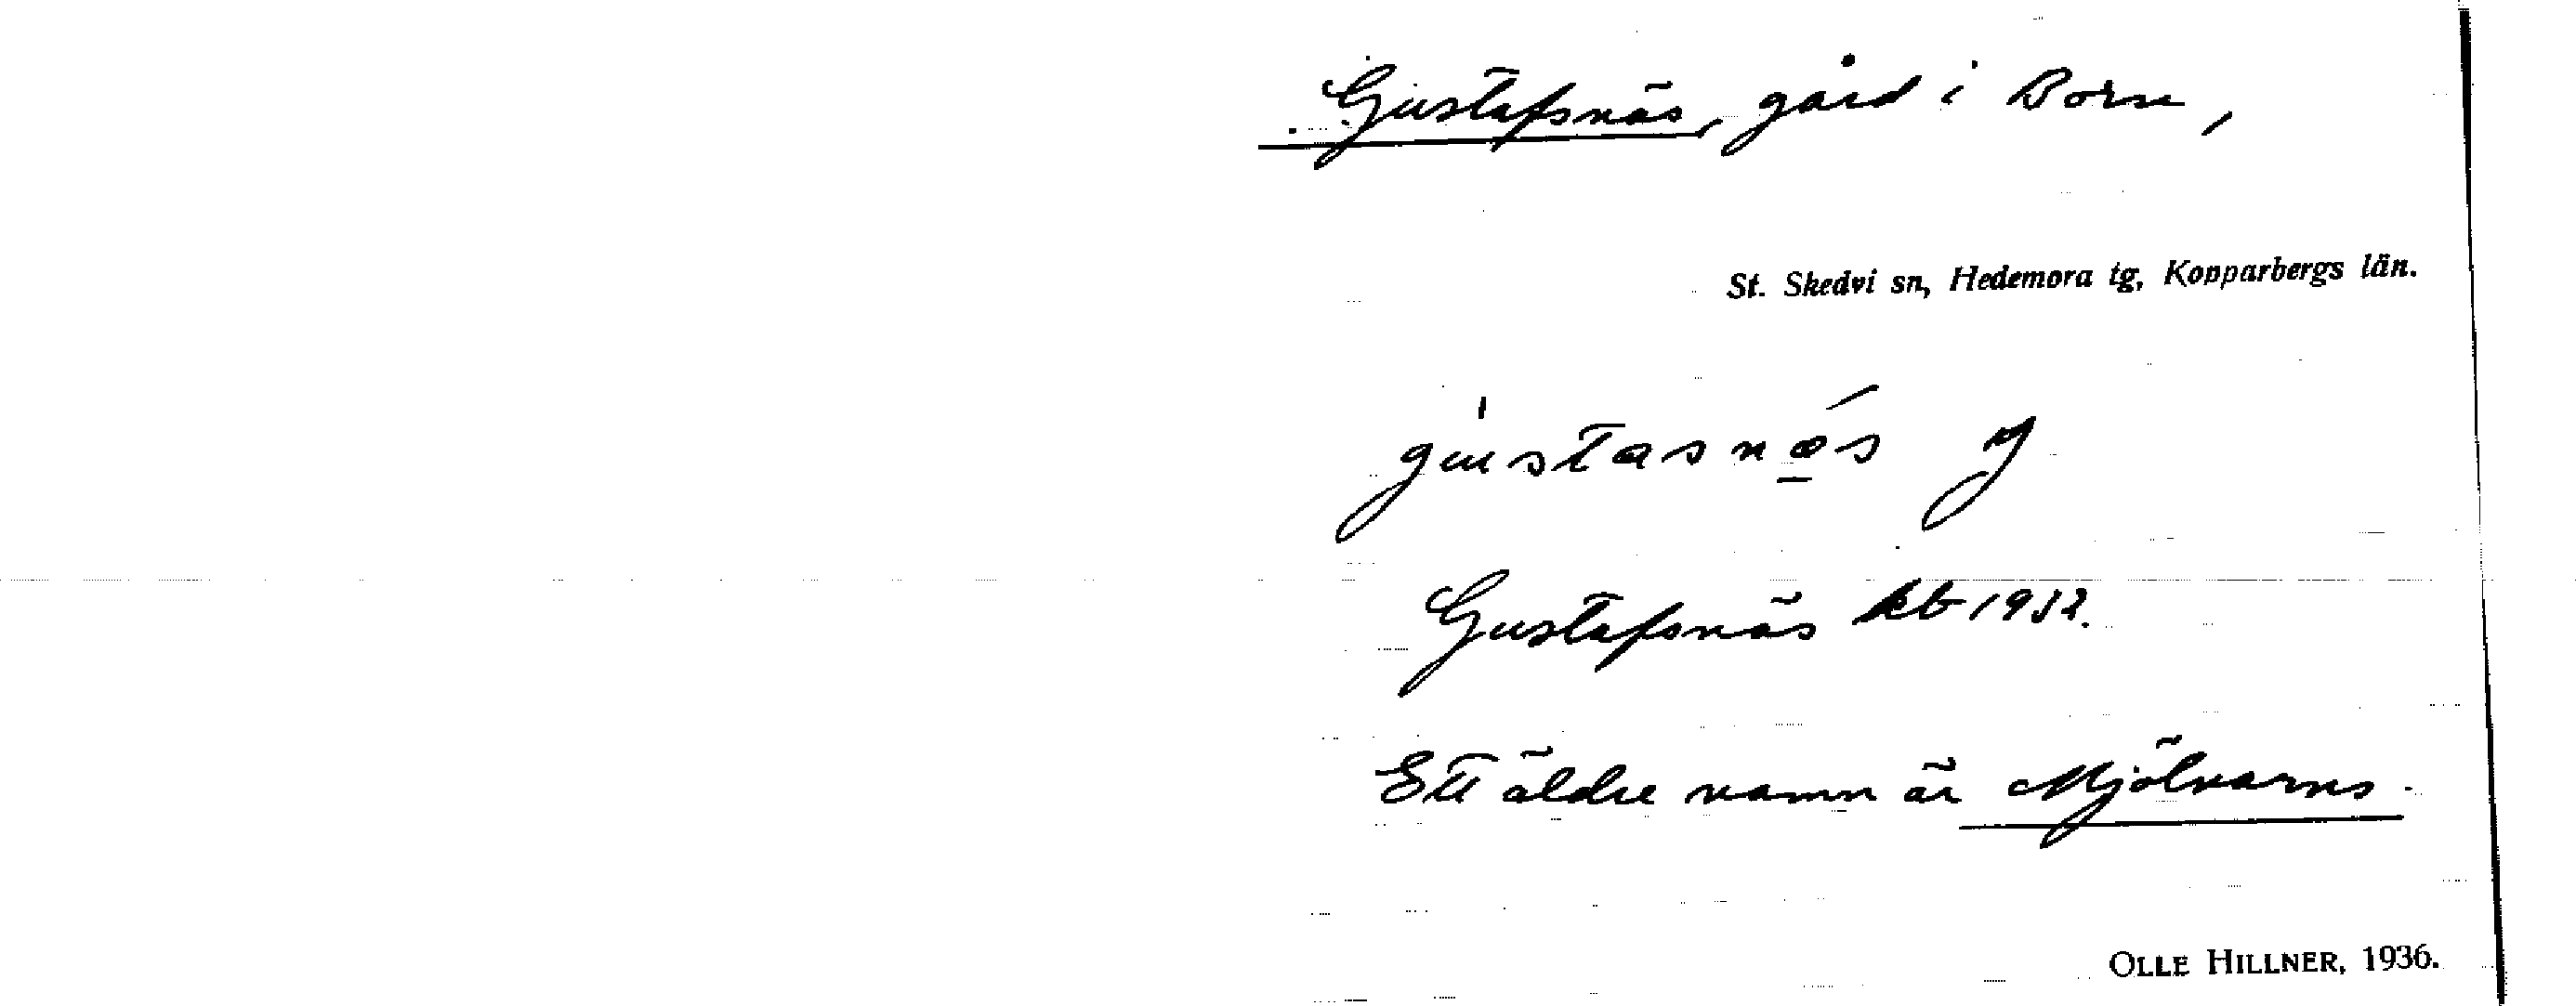 Gustafsnäs, gård i Born,
St. Skedvi sn, Hedemora tg, Kopparbergs län.
gustasnæs
Gustafsnäs kb 1932.
Ett äldre namn är Mjölvarns.
OLLE HILLNER, 1936.